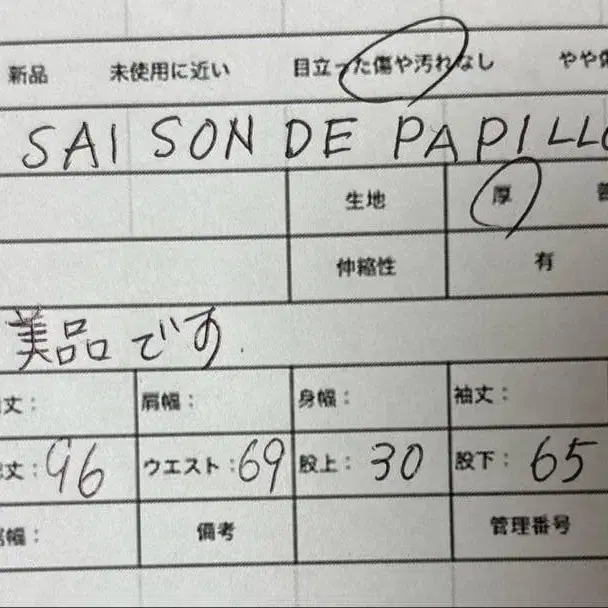 新品 未使用に近い 目立った傷や汚れなし やや
SAISON DE PAPILLO
生地 厚
伸縮性 有
美品です.
丈: 肩幅: 身幅: 袖丈:
丈: 96 ウエスト: 69 股上: 30 股下: 65
幅: 備考 管理番号